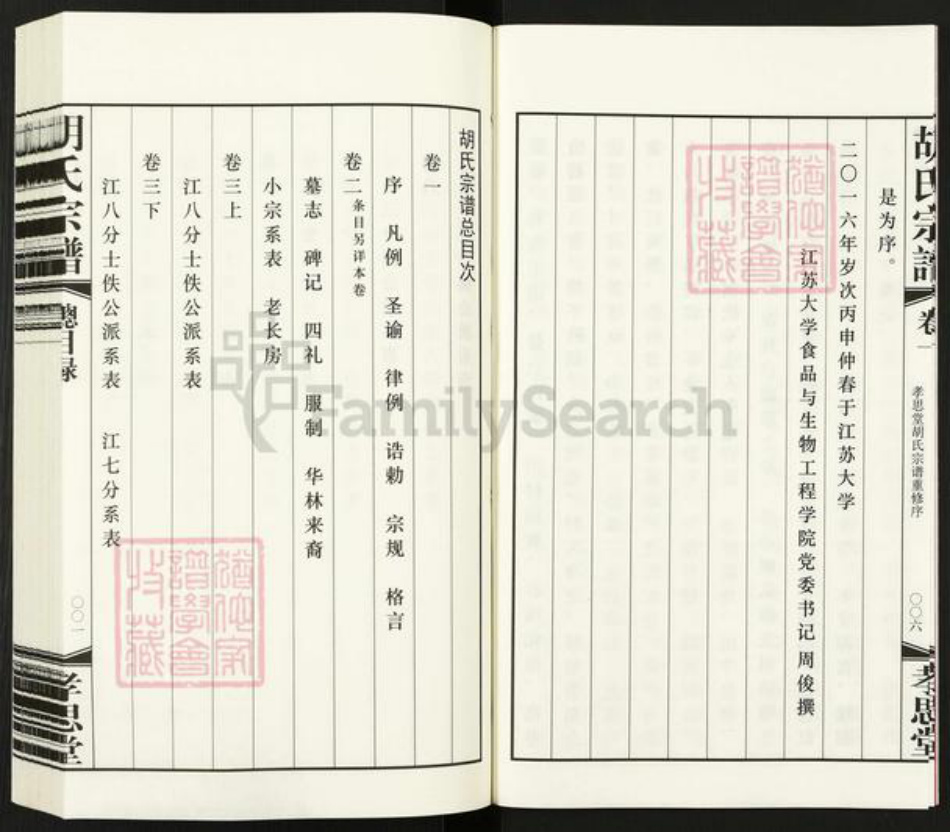 胡氏宗譜
卷一
孝思堂胡氏宗谱重修序
〇〇六
孝思堂
是为序。
二〇一六年岁次丙申仲春于江苏大学
江苏大学食品与生物工程学院党委书记 周俊撰
胡氏宗谱总目次
卷一
序 凡例 圣谕 律例 诰勅 宗规 格言
卷二 条目另详本卷
墓志 碑记 四礼 服制 华林来裔
小宗系表 老长房
卷三上
江八分士佚公派系表
卷三下
江八分士佚公派系表 江七分系表
胡氏宗譜
總目录
〇〇一
孝思堂
FamilySearch